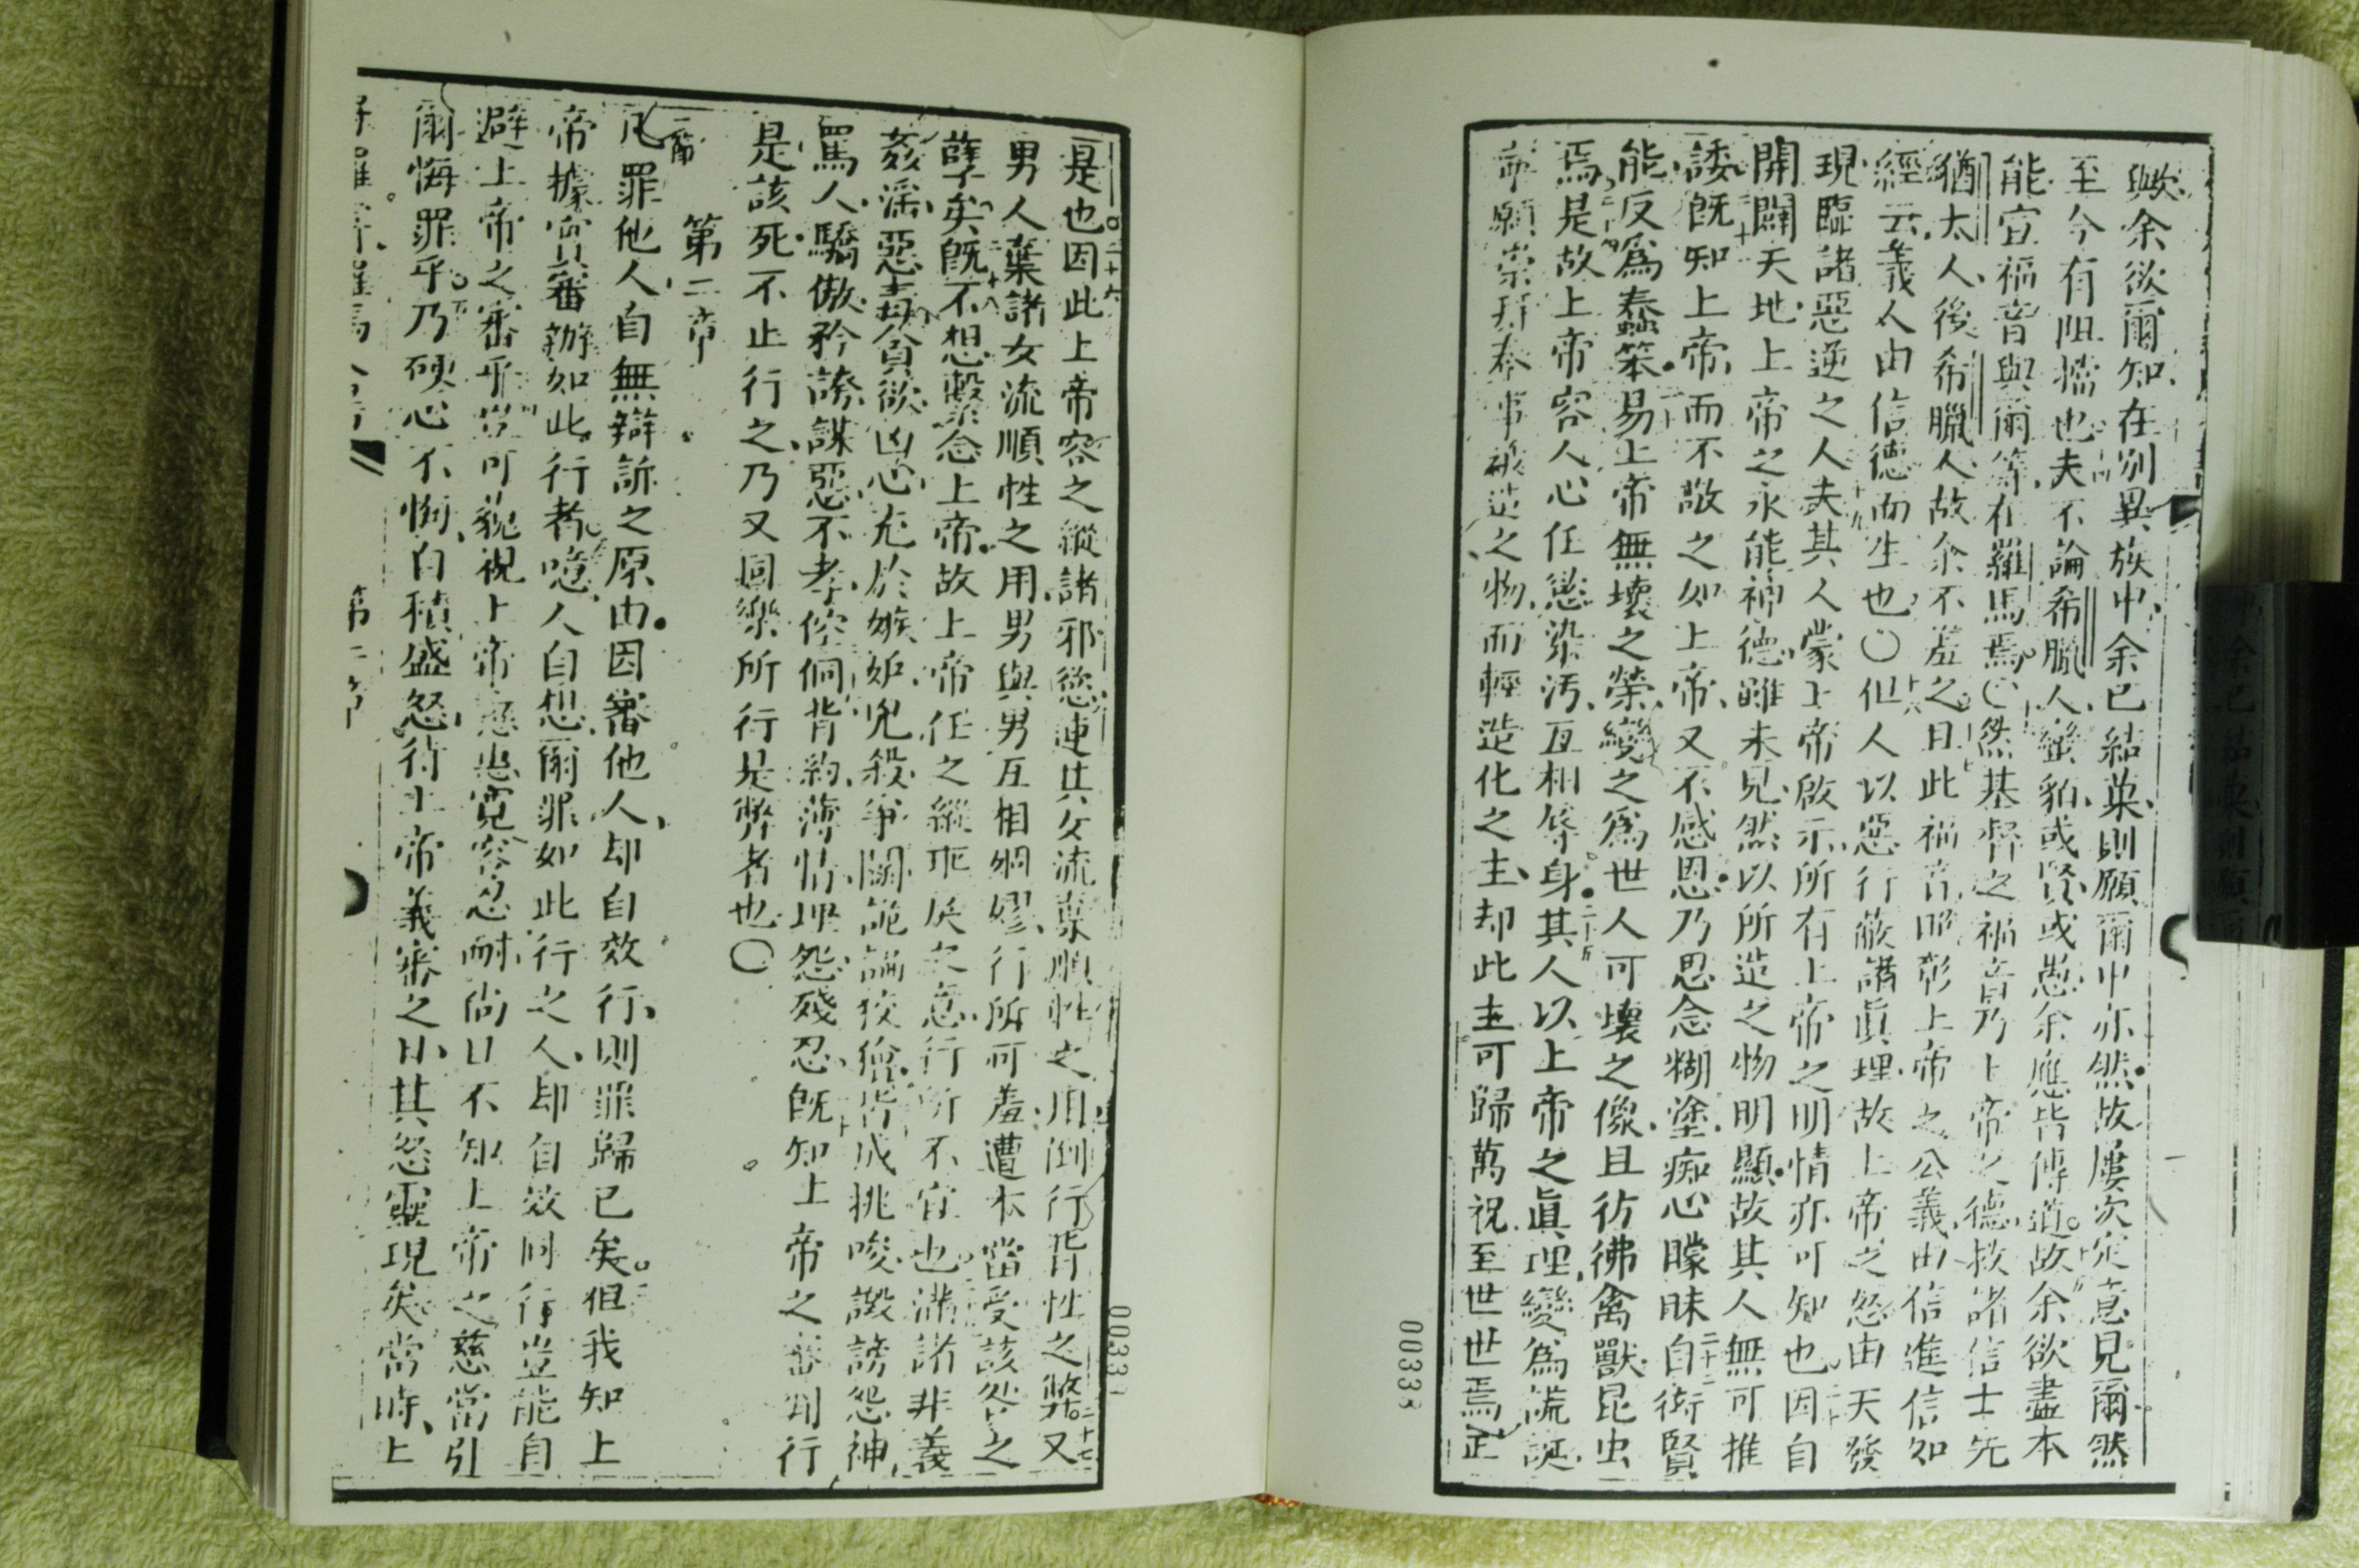 歟余欲爾知在別異族中余已結菓則願爾中亦然故屢次定意見爾然
至今有阻擋也夫不論希臘人蠻貊或賢或愚余應皆傳道故余欲盡本
能宣福音與爾等在羅馬焉〇然基督之福音乃上帝之德救諸信士先
猶太人後希臘人故余不羞之曰此福音昭彰上帝之公義由信進信如
經云義人由信德而生也〇但人以惡行蔽諸眞理故上帝之怒由天發
現臨諸惡逆之人夫其人蒙上帝啟示所有上帝之明情亦可知也因自
開闢天地上帝之永能神德雖未見然以所造之物明顯故其人無可推
諉既知上帝而不敬之如上帝又不感恩乃思念糊塗痴心矇昧自衒賢
能反爲蠢笨易上帝無壞之榮變之爲世人可壞之像且彷彿禽獸昆虫
焉是故上帝容人心任慾染汚互相辱身其人以上帝之眞理變爲謊誕
而願崇拜奉事被造之物而輕造化之主却此主可歸萬祝至世世焉正
00333
是也因此上帝容之縱諸邪慾連其女流棄順性之用倒行背性之弊又
男人棄諸女流順性之用男與男互相綢繆行所可羞遭本當受該咎之
孽矣既不想繫念上帝故上帝任之縱
行所不宜也滿諸非義
姦淫惡毒貪欲凶心充於嫉妒兇殺爭鬭詭譎狡獪皆成挑唆譭謗怨神
罵人驕傲矜誇謀惡不孝倥侗背約薄情埋怨殘忍既知上帝之審判行
是該死不止行之乃又同樂所行是弊者也〇
第二章
凡罪他人自無辯訴之原由因審他人却自效行則罪歸已矣但我知上
帝據實審辦如此行者噫人自想爾罪如此行之人却自效同行豈能自
避上帝之審乎豈可藐視上帝慈惠寬容忍耐尚且不知上帝之慈當引
爾悔罪乎乃硬心不悔自積盛怒待上帝義審之日其怒靈現矣當時上
第二章